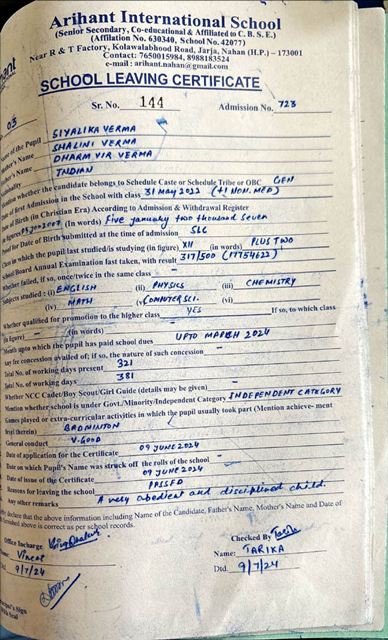 Arihant International School
(Senior Secondary, Co-educational & Affiliated to C. B. S. E.)
(Affiliation No. 630340, School No. 42077)
Near R & T Factory, Kolawalabhood Road, Jarja, Nahan (H.P.) - 173001
Contact: 7650015984, 8988183524
e-mail : arihant.nahan@gmail.com
SCHOOL LEAVING CERTIFICATE
Sr. No. 144 Admission No. 723
03
of the Pupil SIYALIKA VERMA
Name SHALINI VERMA
Name DHARM VIR VERMA
INDIAN
whether the candidate belongs to Schedule Caste or Schedule Tribe or OBC GEN
of first Admission in the School with class 31 May 2022 (+1 NON. MED)
of Birth (in Christian Era) According to Admission & Withdrawal Register
(In words) Five january two thousand seven
for Date of Birth submitted at the time of admission SLC
in which the pupil last studied/is studying (in figure) XII (in words) PLUS TWO
School/Board Annual Examination last taken, with result 317/500 (17754622)
Whether failed, if so, once/twice in the same class -
Subjects studied : (i) ENGLISH (ii) PHYSICS (iii) CHEMISTRY
(iv) MATH (v) COMPUTER SCI. (vi)
Whether qualified for promotion to the higher class YES If so, to which class
(in figure) - (in words)
Month upto which the pupil has paid school dues UPTO MARCH 2024
Any fee concession availed of; if so, the nature of such concession -
Total No. of working days present 321
Total No. of working days 381
Whether NCC Cadet/Boy Scout/Girl Guide (details may be given) -
Mention whether school is under Govt./Minority/Independent Category INDEPENDENT CATEGORY
Games played or extra-curricular activities in which the pupil usually took part (Mention achieve- ment
level therein) BADMINTON
General conduct V. GOOD
Date of application for the Certificate 09 JUNE 2024
Date on which Pupil's Name was struck off the rolls of the school -
Date of issue of the Certificate 09 JUNE 2024
Reasons for leaving the school PASSED
Any other remarks A very obedient and disciplined child.
declare that the above information including Name of the Candidate, Father's Name, Mother's Name and Date of
furnished above is correct as per school records.
Office Incharge
Checked By Tarika
Vineet
Name: TARIKA
Dtd. 9/7/24
Dtd. 9/7/24